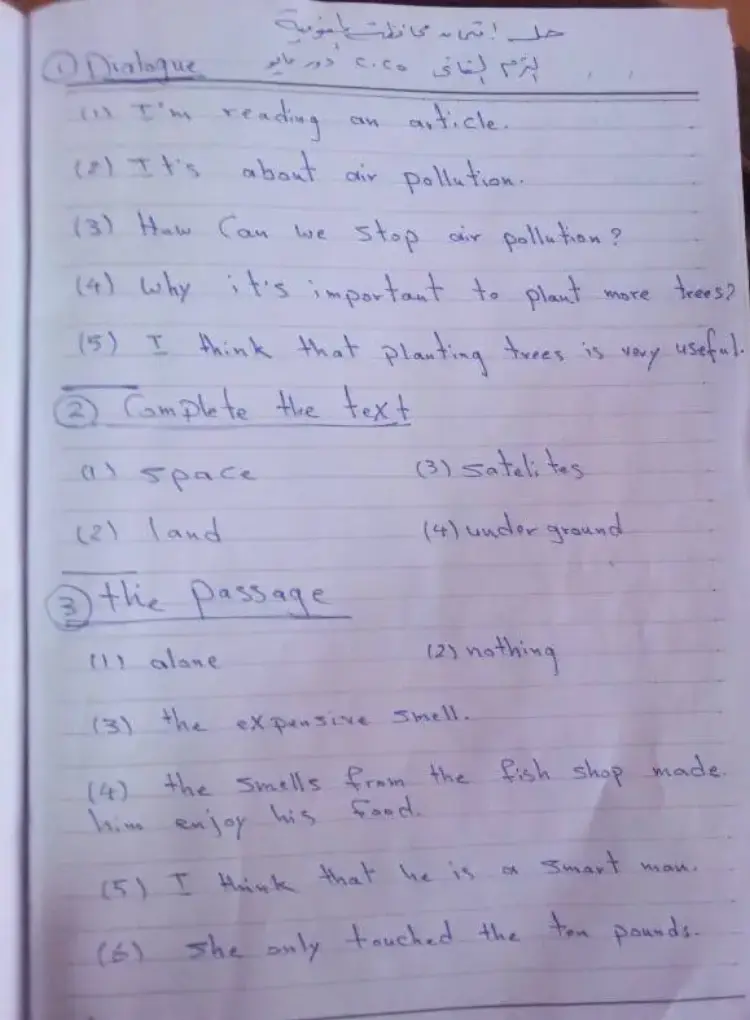 حل امتحان محافظة المنوفية
① Dialogue الترم الثانى ٢٠٢٥ دور مايو
(1) I'm reading an article.
(2) It's about air pollution.
(3) How Can we stop air pollution?
(4) Why it's important to plant more trees?
(5) I think that planting trees is very useful.
② Complete the text
(1) space (3) satelites
(2) land (4) under ground
③ the passage
(1) alone (2) nothing
(3) the expensive smell.
(4) the smells from the fish shop made
him enjoy his food.
(5) I think that he is a smart man.
(6) she only touched the ten pounds.